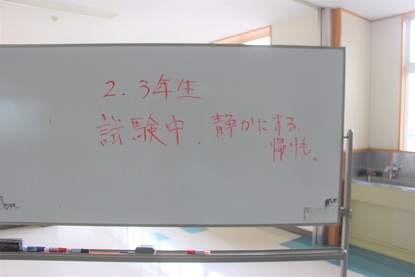 2、3年生
試験中、静かにする。
帰りも。